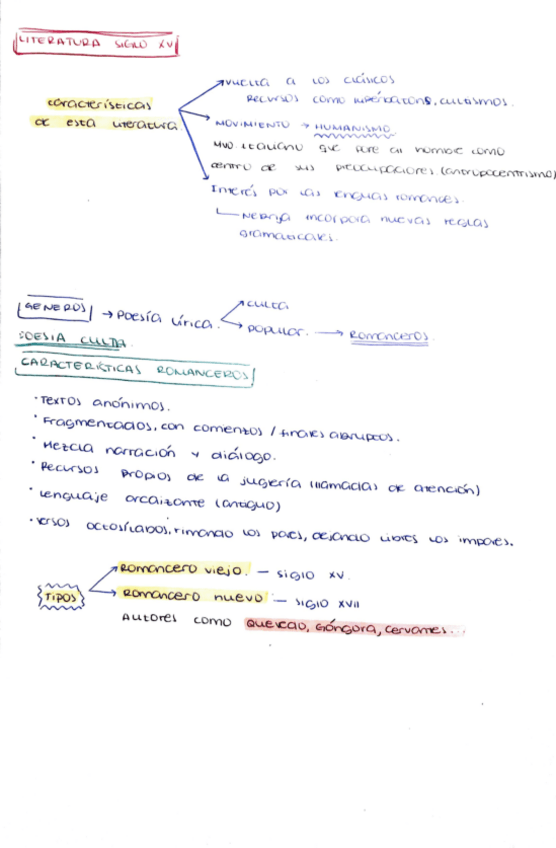 LITERATURA SIGLO XV
características
de esta literatura
vuelta a los clásicos
recursos como hipérbatons, cultismos.
MOVIMIENTO → HUMANISMO
mvo italiano que pone al hombre como
centro de sus preocupaciones (antropocentrismo)
Interés por las lenguas romances.
Nebrija incorpora nuevas reglas
gramaticales.
GENEROS → Poesía lírica.
culta
popular. → Romanceros.
POESIA CULTA.
CARACTERÍSTICAS ROMANCEROS
· Textos anónimos.
· Fragmentados, con comentos / finales abruptos.
· Mezcla narración y diálogo.
· Recursos propios de la juglería (llamadas de atención)
· Lenguaje arcaizante (antiguo)
· versos octosílabos, rimando los pares, dejando libres los impares.
TIPOS
Romancero viejo. – siglo XV.
Romancero nuevo – siglo XVII
Autores como Quevedo, Góngora, Cervantes...